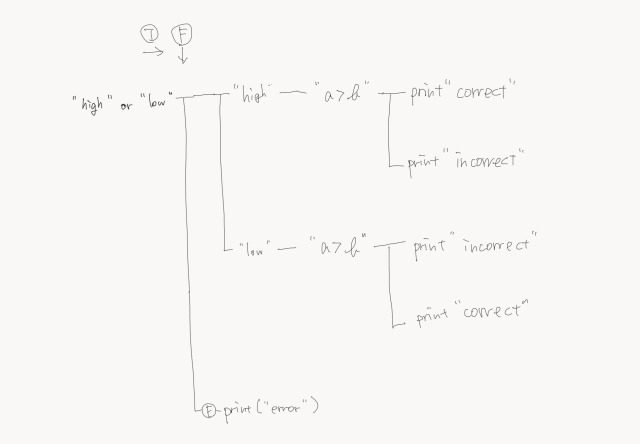 T F
"high" or "low" "high" "a>b" print "correct"
print "incorrect"
"low" "a>b" print "incorrect"
print "correct"
F print("error")